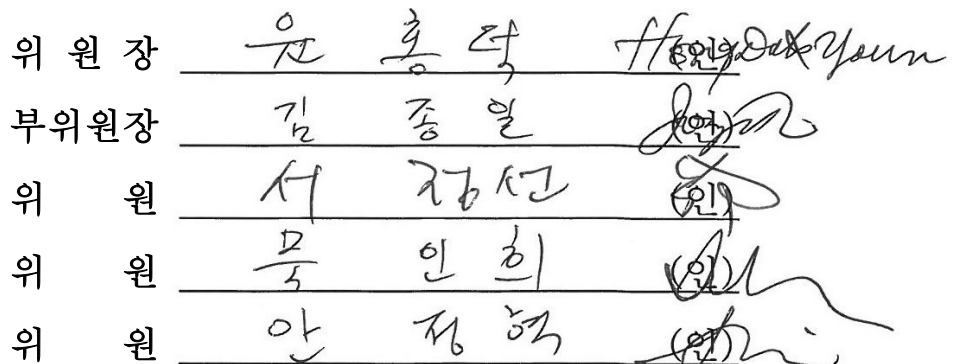 위 원 장 윤 홍 덕 (인) Hongduk Youn
부위원장 김 종 일 (인)
위 원 서 정선 (인)
위 원 묵 인 희 (인)
위 원 안 정 혁 (인)